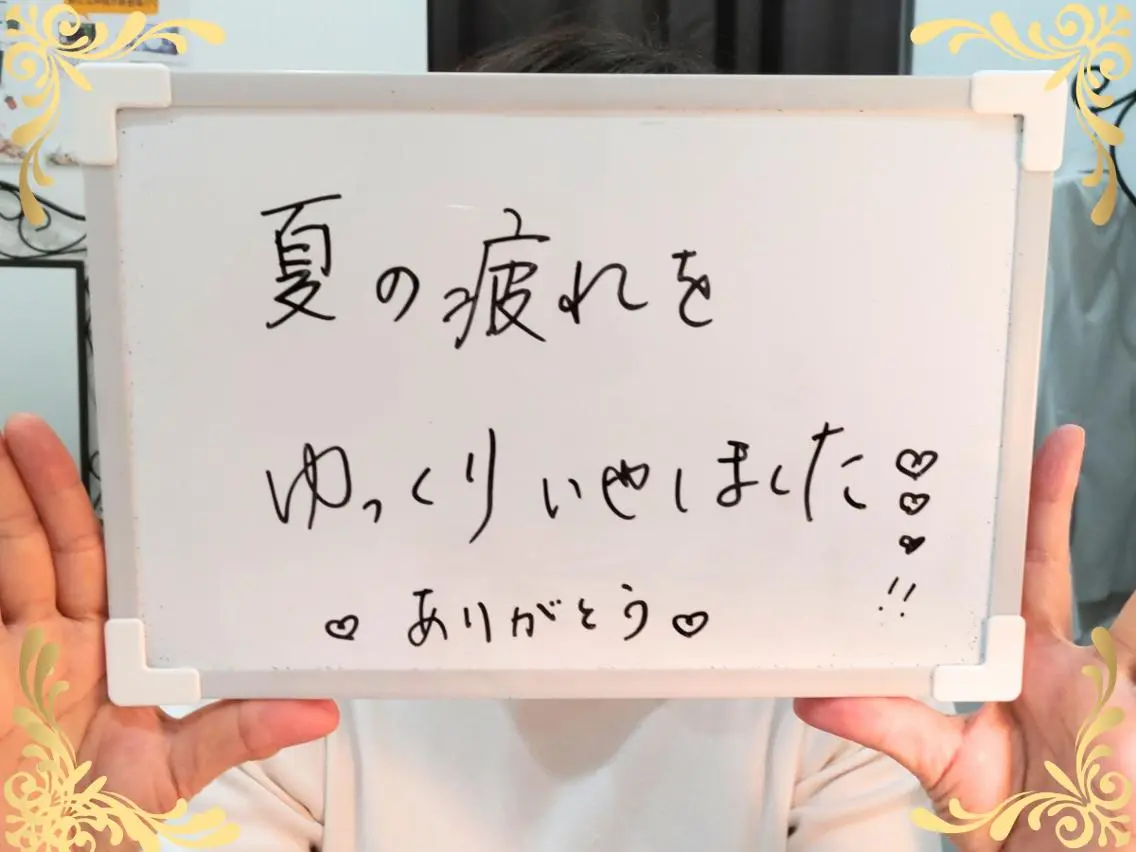 夏の疲れを
ゆっくりいやしました♡♡♡!!
♡ありがとう♡